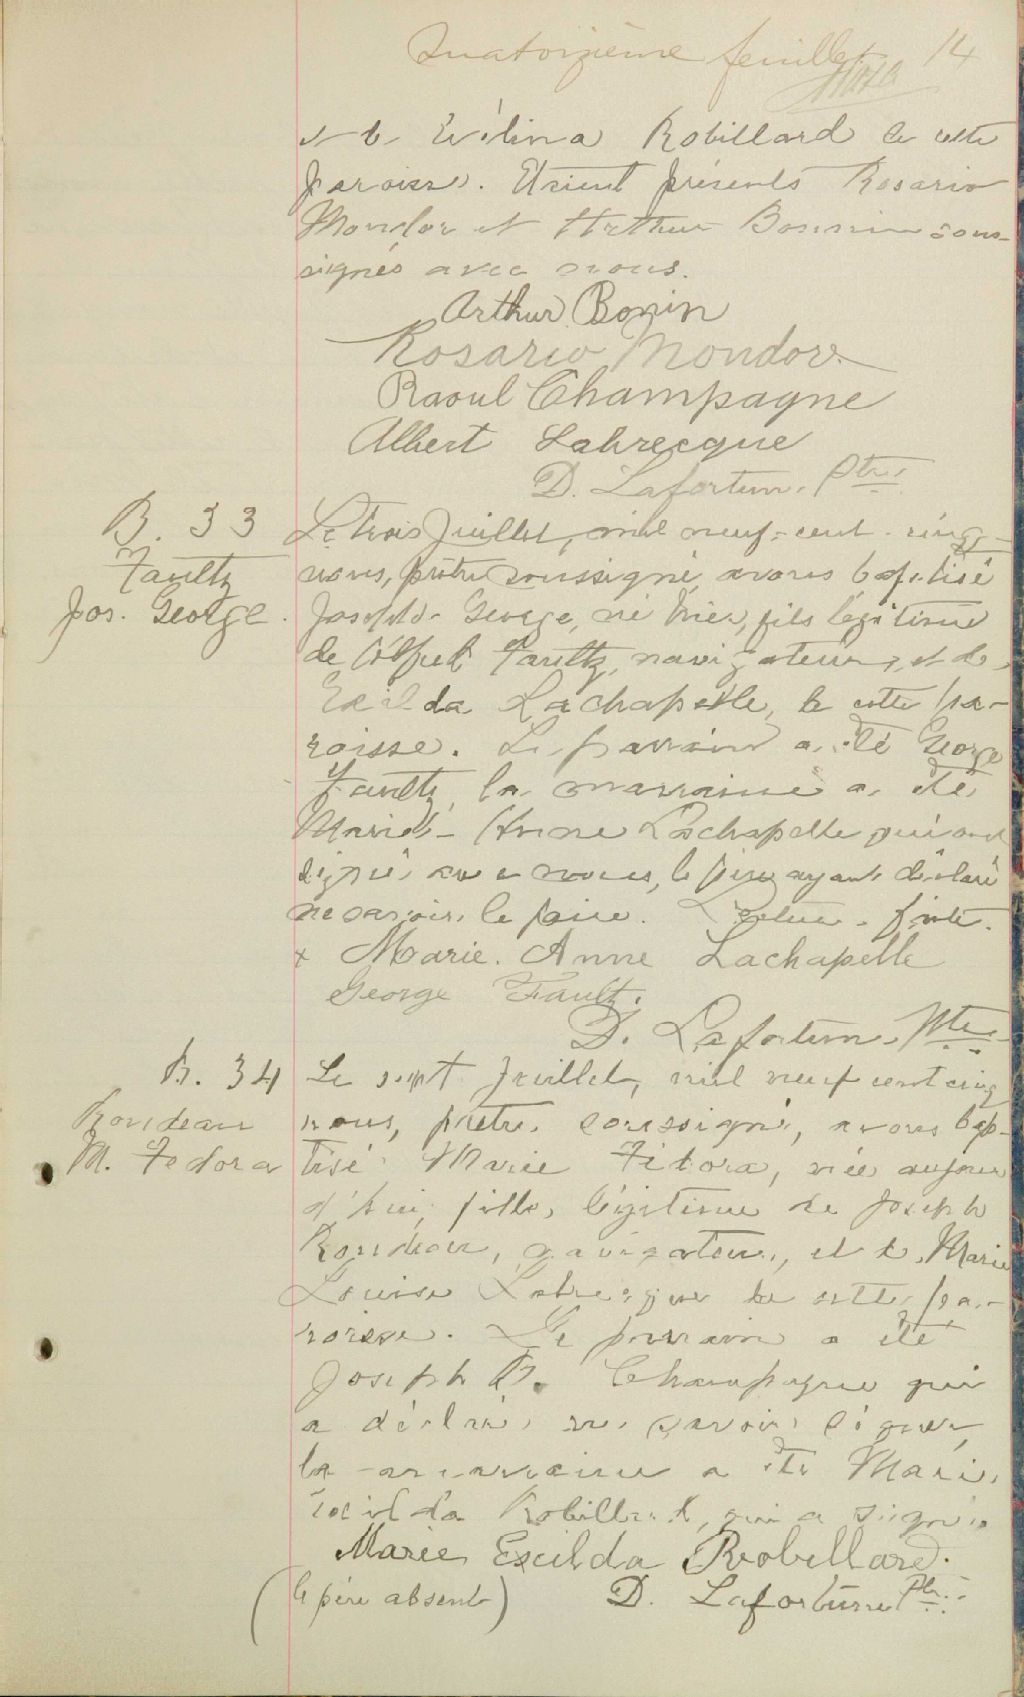 Quatorzième feuillet 14
et de Evélina Robillard de cette
paroisse. Etaient présents Rosario
Mondor et Arthur Bonin sous-
signés avec nous.
Arthur Bonin
Rosario Mondor
Raoul Champagne
Albert Labrecque
D. Lafortune, Ptre
B. 33
Faultz
Jos. George.
Le trois Juillet, mil neuf-cent-cinq
nous, prêtre soussigné, avons baptisé
Joseph George, né hier, fils légitime
de Faultz, navigateur, et de
Exilda Lachapelle, de cette pa-
roisse. Le parrain a été George
Faultz, la marraine a été
Marie-Anne Lachapelle qui ont
signé avec nous, le père ayant déclaré
ne savoir le faire. Lecture faite.
x Marie. Anne Lachapelle
George Fault.
D. Lafortune, Ptre
B. 34
Rondeau
M. Fedora
Le sept Juillet, mil neuf cent cinq
nous, prêtre soussigné, avons bap-
tisé Marie Fédora, née aujour
d'hui, fille légitime de Joseph
Rondeau, navigateur, et de Marie
Louise Labrecque de cette pa-
roisse. Le parrain a été
Joseph B. Champagne qui
a déclaré ne savoir signer,
la marraine a été Marie
Exilda Robillard, qui a signé.
Marie Exilda Robillard.
(le père absent) D. Lafortune Ptr.